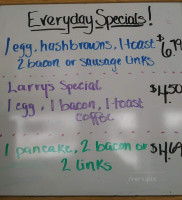 Everyday Specials!
1 egg, hashbrowns, 1 toast $6.79
2 bacon or sausage links
Larrys Special $4.50
1 egg, 1 bacon, 1 toast
coffee
1 pancake, 2 bacon or $4.69
2 links